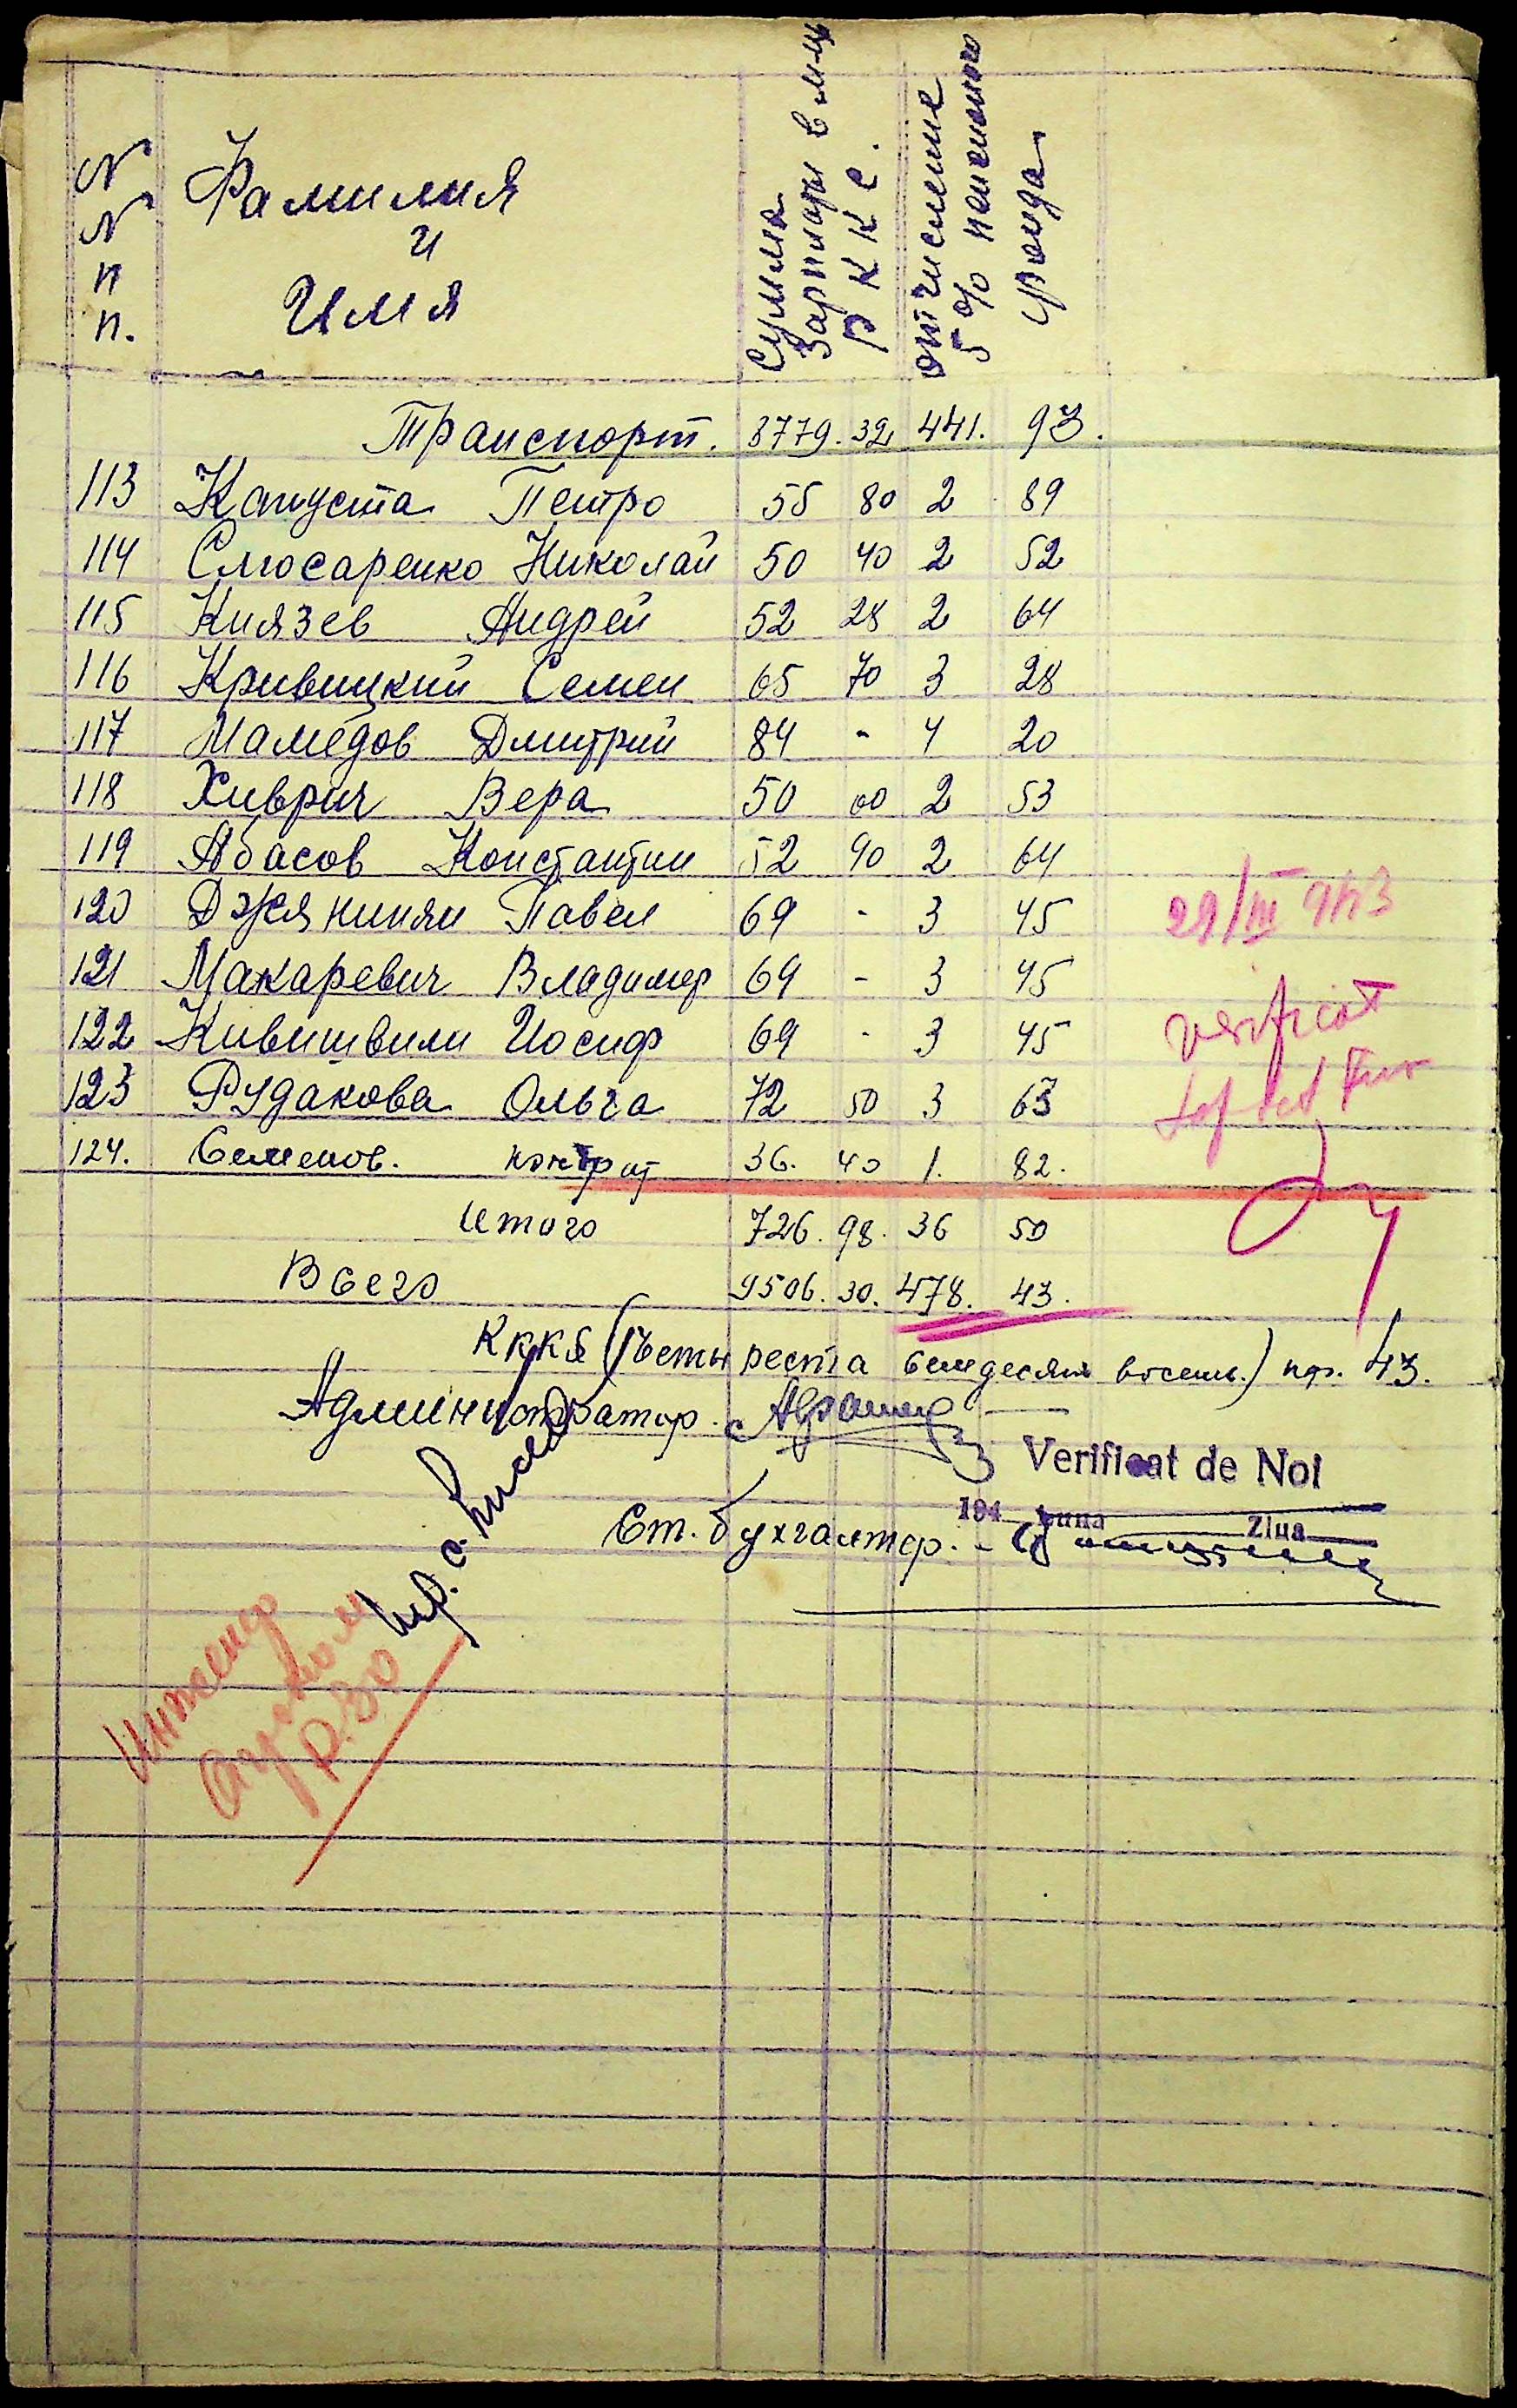 N N п п.
Фамилия
и
Имя
Сумма
Зарплаты в м-це
Р К К С.
отчисление
5 % пенсионого
фонда
Транспорт. 8779. 32 441. 93.
113 Капуста Петро 55 80 2 89
114 Слюсаренко Николай 50 40 2 52
115 Князев Андрей 52 28 2 64
116 Кривицкий Семен 65 70 3 28
117 Мамедов Дмитрий 84 - 4 20
118 Хиврич Вера 50 00 2 53
119 Абасов Константин 52 90 2 64
120 Джянинян Павел 69 - 3 45
121 Макаревич Владимер 69 - 3 45
122 Кивишвили Иосиф 69 - 3 45
123 Рудакова Ольга 72 50 3 63
124. Семенов. кондрат 36. 40 1. 82.
29/III 943
verificat
Итого 726. 98. 36 50
Всего 9506. 30. 478. 43.
(Четыреста семдесят восемь.) пф. 43.
Администратор.
Verificat de Noi
194 Luna Ziua
Ст. бухгалтер.